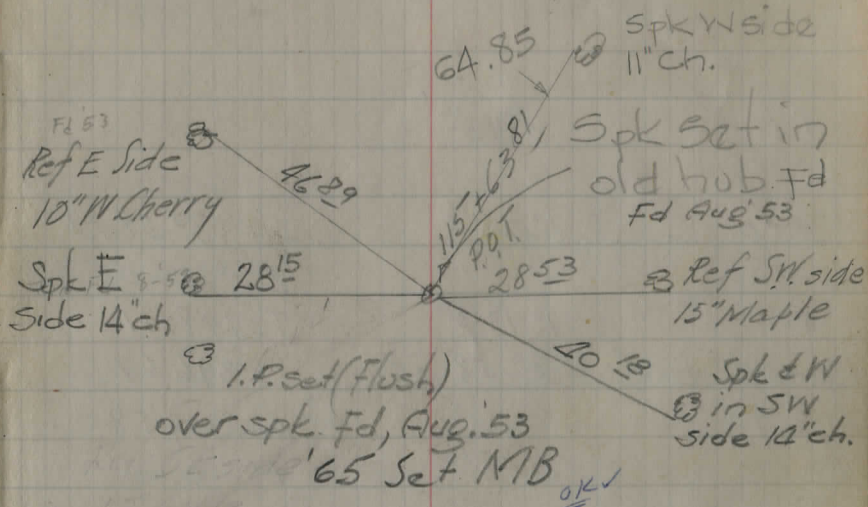 Spk W side
11" Ch.
64.85
Fd '53
Ref E Side
10" W. Cherry
46 89
115+63.81
Spk Set in
old hub. Fd
Fd Aug '53
P.O.T.
Spk E
Side 14" ch
28 15
28 53
Ref SW. side
15" Maple
40 18
Spk & W
in SW
side 14" ch.
I.P. set (Flush)
over spk. Fd, Aug. '53
'65 Set MB
OK ✓